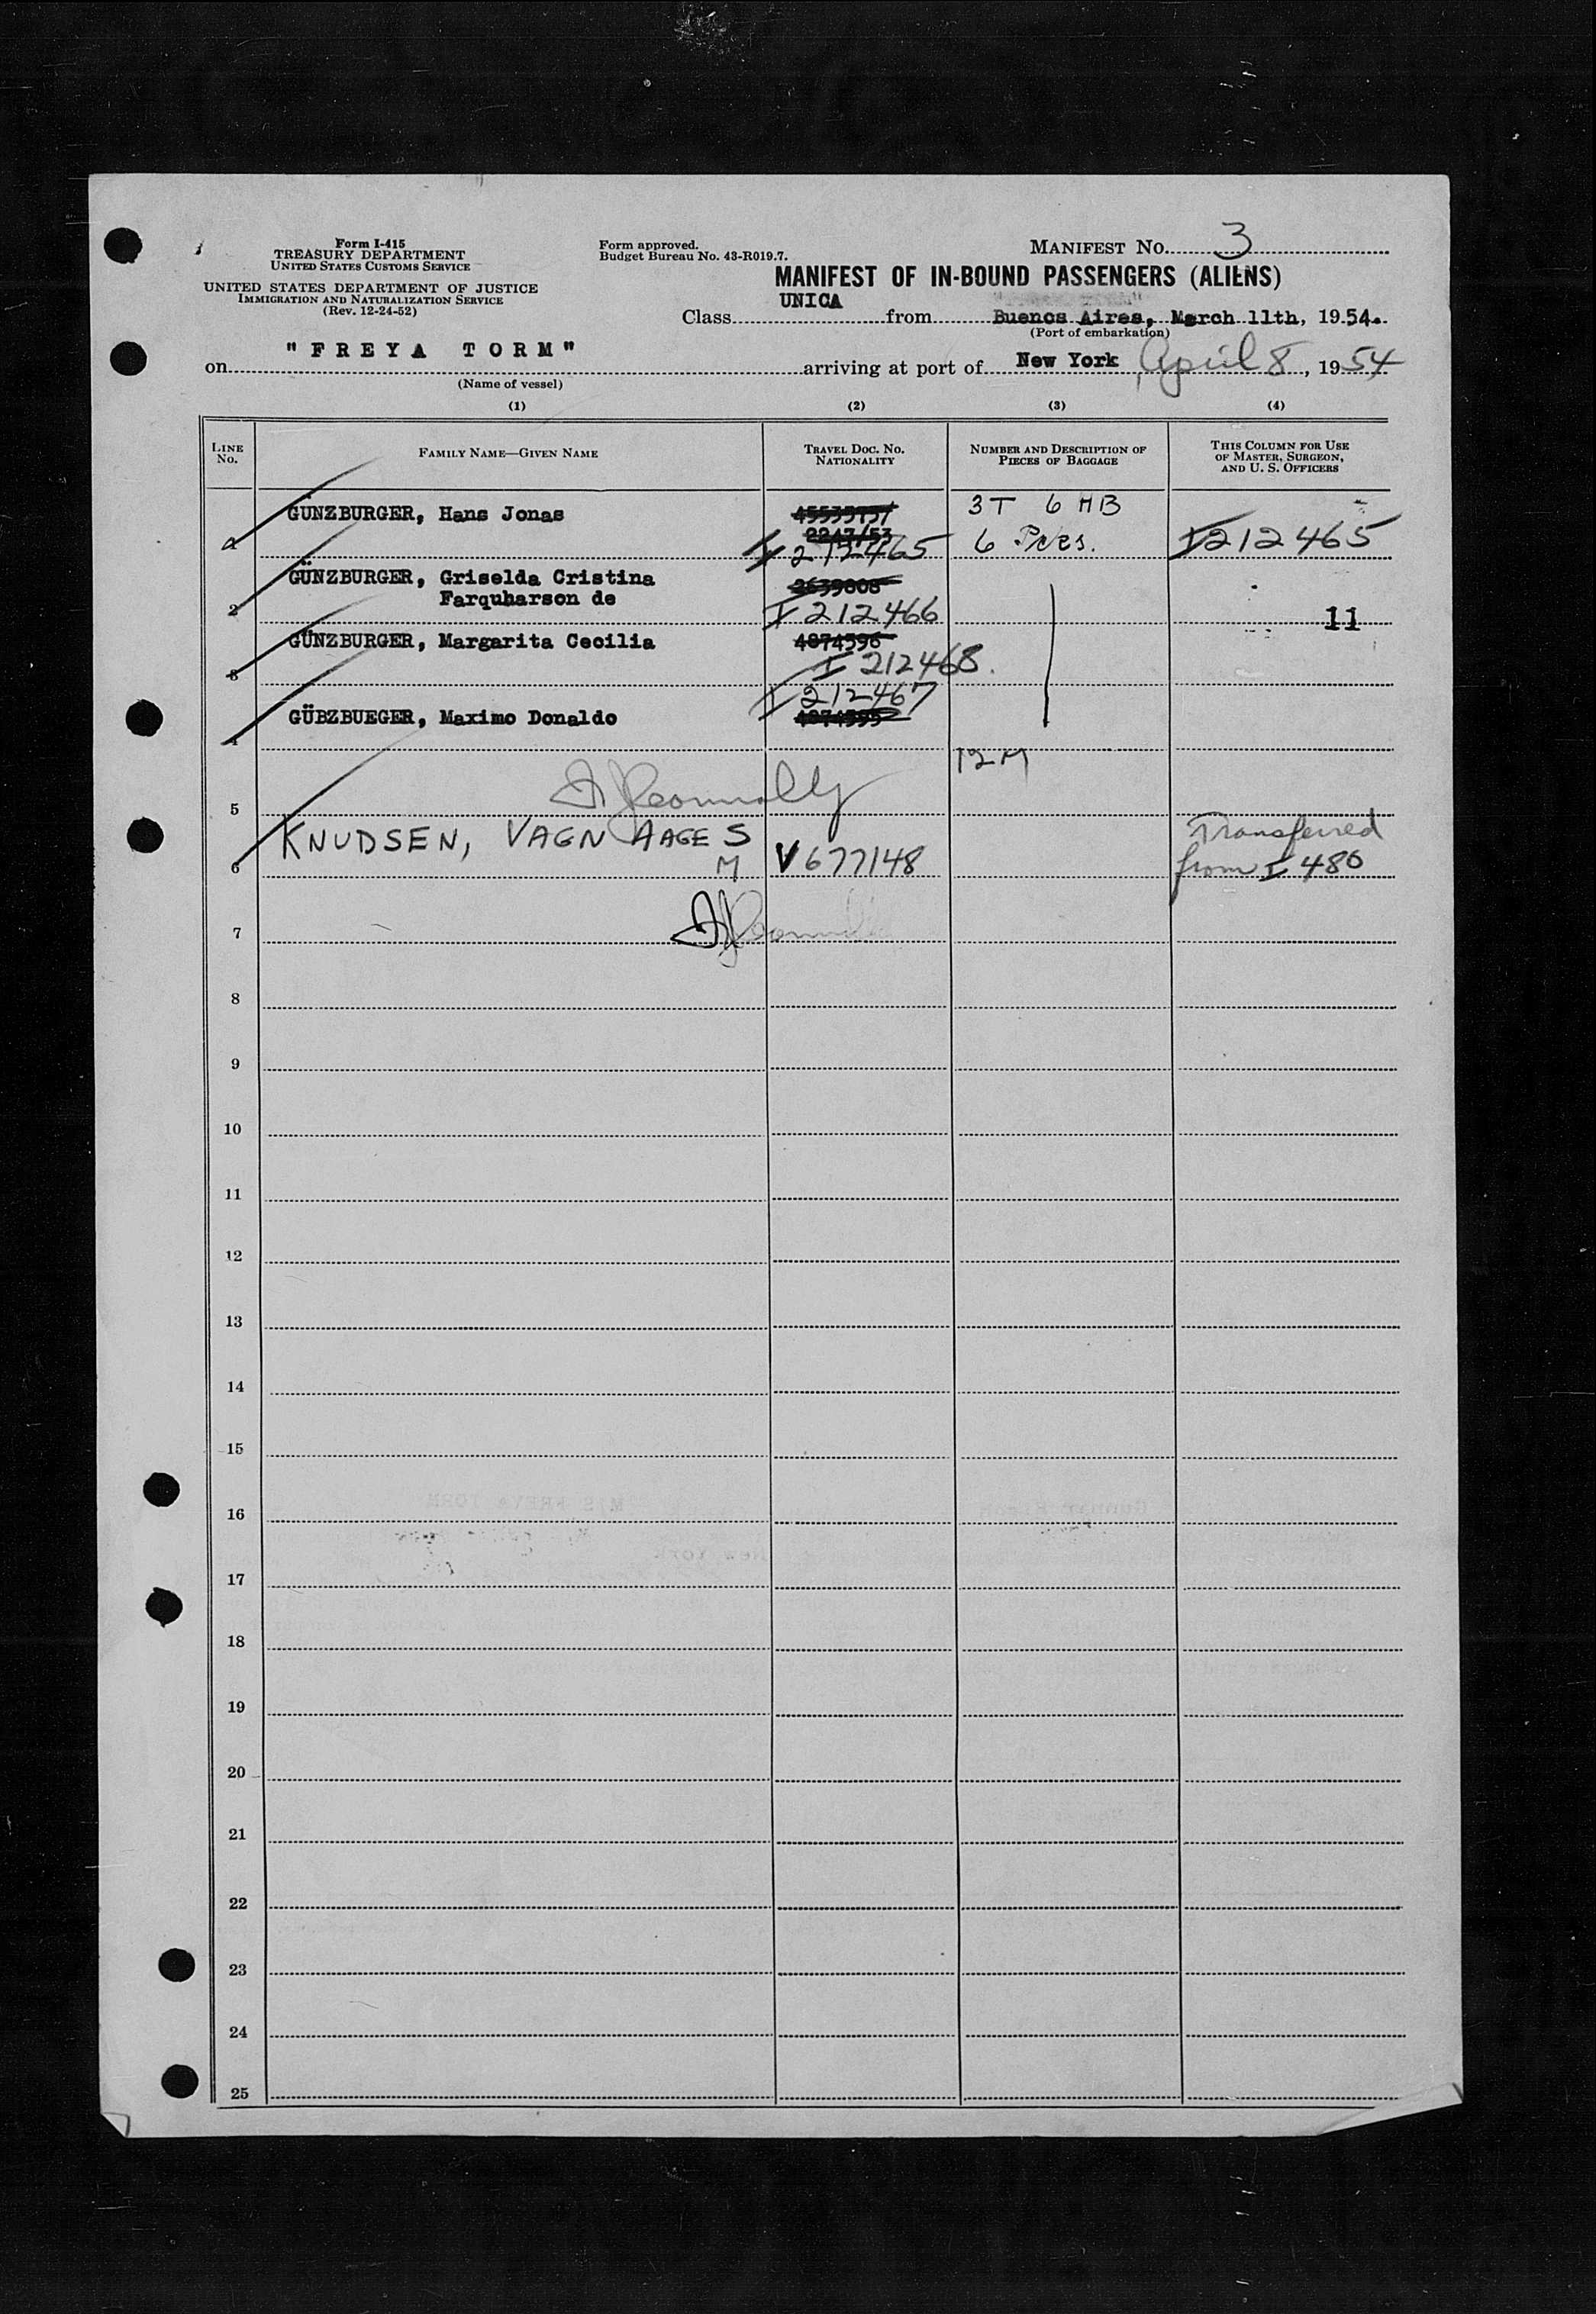 Form I-415
TREASURY DEPARTMENT
UNITED STATES CUSTOMS SERVICE
UNITED STATES DEPARTMENT OF JUSTICE
IMMIGRATION AND NATURALIZATION SERVICE
(Rev. 12-24-52)
Form approved.
Budget Bureau No. 43-R019.7.
MANIFEST NO. 3
MANIFEST OF IN-BOUND PASSENGERS (ALIENS)
Class UNICA from Buenos Aires, March 11th, 1954.
(Port of embarkation)
on "FREYA TORM" arriving at port of New York, April 8, 1954
(Name of vessel)
(1) (2) (3) (4)
LINE No.
FAMILY NAME—GIVEN NAME
TRAVEL DOC. NO. NATIONALITY
NUMBER AND DESCRIPTION OF PIECES OF BAGGAGE
THIS COLUMN FOR USE OF MASTER, SURGEON, AND U. S. OFFICERS
GÜNZBURGER, Hans Jonas 3T 6 HB
2247/53
1 I 212465 6 Pces. I 212465
GÜNZBURGER, Griselda Cristina 2639808
Farquharson de
2 I 212466 11
GÜNZBURGER, Margarita Cecilia 4074596
3 I 212468.
I 212467
GÜBZBUEGER, Maximo Donaldo 4074595
4
12 M
5
KNUDSEN, VAGN AAGE S Transferred
6 M V677148 from I 480
7
8
9
10
11
12
13
14
15
16
17
18
19
20
21
22
23
24
25